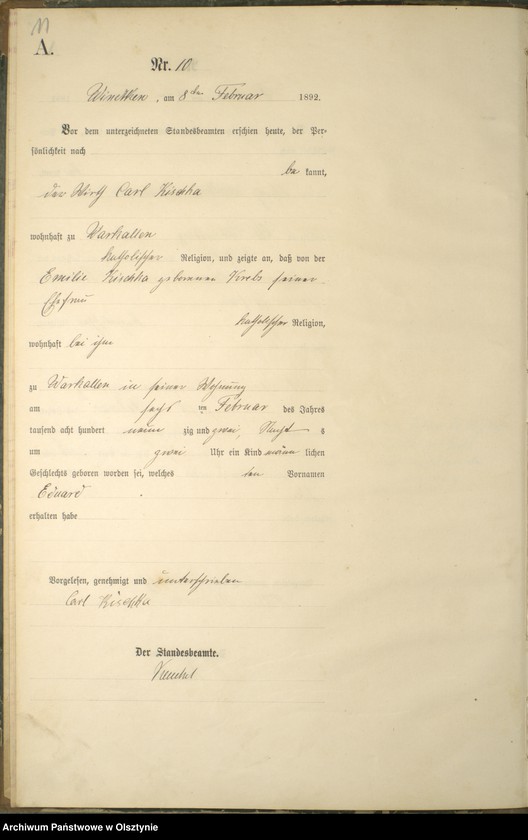 11
A.
Nr. 10.
Winetken, am 8ten Februar 1892.
Vor dem unterzeichneten Standesbeamten erschien heute, der Per-
sönlichkeit nach
be kannt,
der Wirth Carl Kischka
wohnhaft zu Warkallen
katholischer Religion, und zeigte an, daß von der
Emilie Kischka geborenen Krebs seiner
Ehefrau
katholischer Religion,
wohnhaft bei ihm
zu Warkallen in seiner Wohnung
am sechs ten Februar des Jahres
tausend acht hundert neun zig und zwei, Nachts
um zwei Uhr ein Kind männ lichen
Geschlechts geboren worden sei, welches den Vornamen
Eduard
erhalten habe
Vorgelesen, genehmigt und unterschrieben
Carl Kischka
Der Standesbeamte.
Archiwum Państwowe w Olsztynie